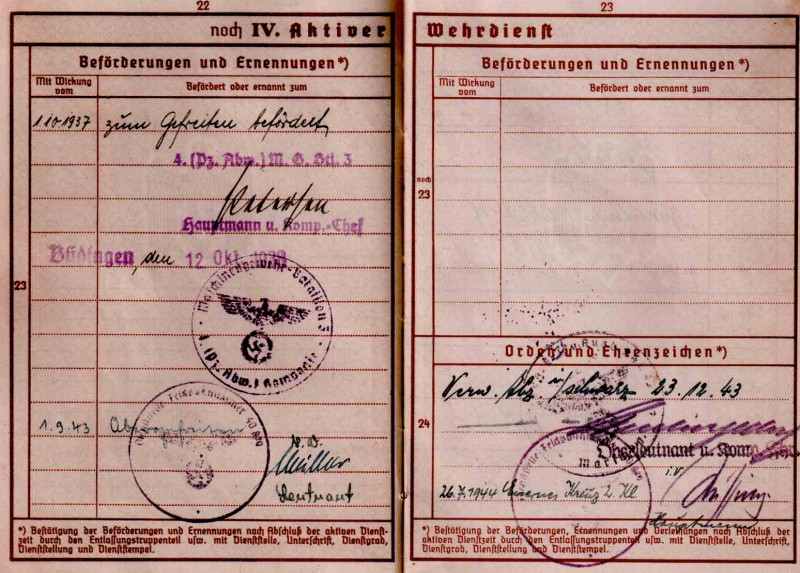 22
noch IV. Aktiver
Beförderungen und Ernennungen*)
Mit Wirkung vom
Befördert oder ernannt zum
1.10.1937 zum Gefreiten befördert
4. (Pz. Abw.) M. G. Btl. 3
Petersen
Hauptmann u. Komp.-Chef
Büdingen, den 12 Okt. 1938
23
Maschinengewehr-Bataillon 3
4. (Pz. Abw.) Kompanie
1.9.43
Müller
Leutnant
*) Bestätigung der Beförderungen und Ernennungen nach Abschluß der aktiven Dienst-
zeit durch den Entlassungstruppenteil usw. mit Dienststelle, Unterschrift, Dienstgrad,
Dienststellung und Dienststempel.
23
Wehrdienst
Beförderungen und Ernennungen*)
Mit Wirkung vom
Befördert oder ernannt zum
noch
23
Orden und Ehrenzeichen*)
Verw. Abz. schwarz 23.12.43
24
Oberleutnant u. Komp.
26.7.1944 Eisernes Kreuz 2. Kl
*) Bestätigung der Beförderungen, Ernennungen und Verleihungen nach Abschluß der
aktiven Dienstzeit durch den Entlassungstruppenteil usw. mit Dienststelle, Unterschrift,
Dienstgrad, Dienststellung und Dienststempel.